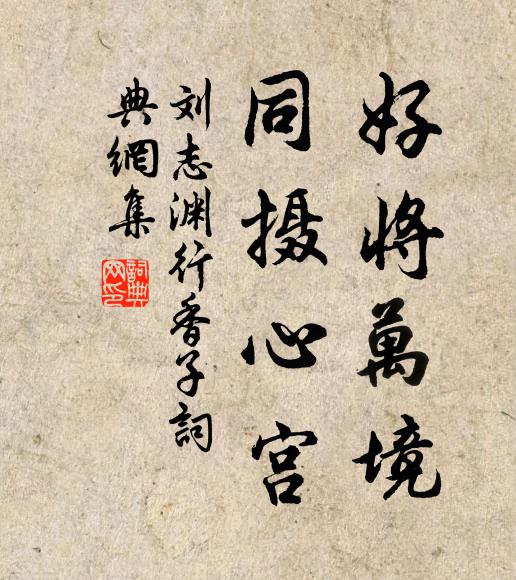 好将萬境
同摄心宫
刘志渊行香子詞
典網集
詞典网印